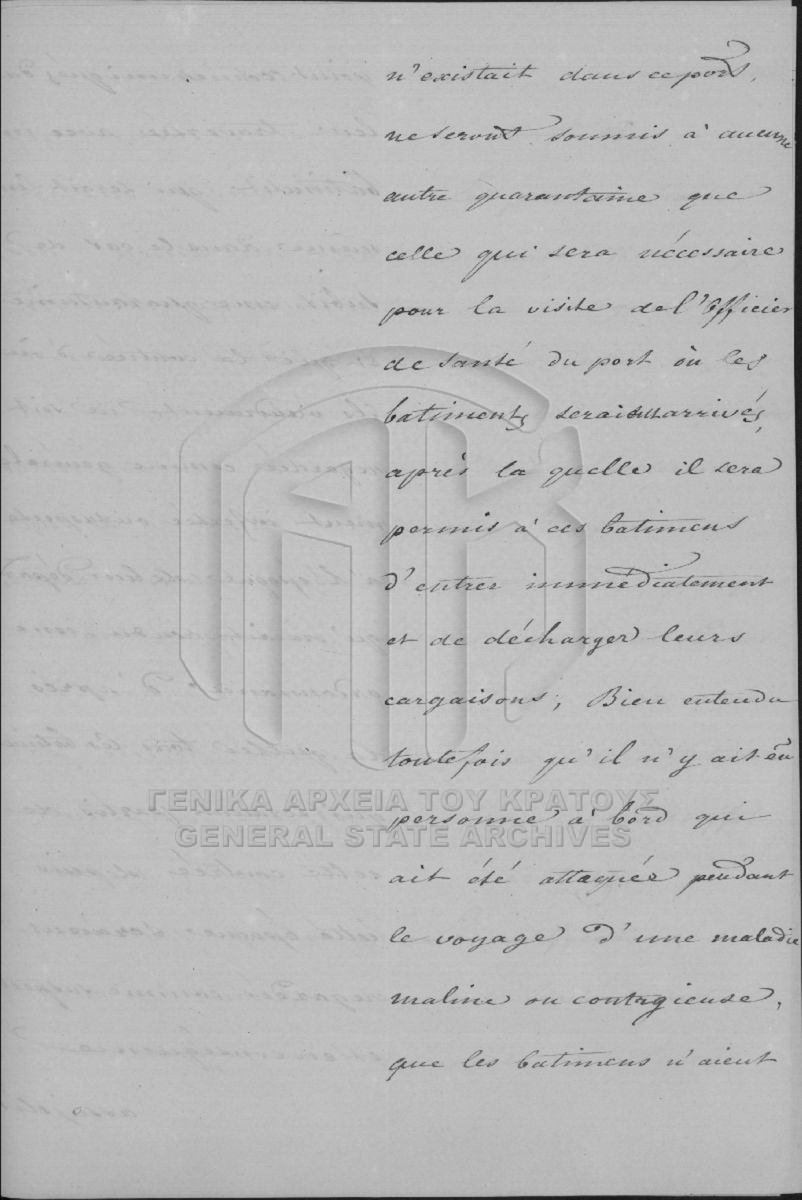 n'existait dans ce port,
ne seront soumis à aucune
autre quarantaine que
celle qui sera nécessaire
pour la visite de l'Officier
de santé du port où les
batiments seraient arrivés,
après la quelle il sera
permis à ces batimens
d'entrer immédiatement
et de décharger leurs
cargaisons; Bien entendu
toutefois qu'il n'y ait eû
ΓΕΝΙΚΑ ΑΡΧΕΙΑ ΤΟΥ ΚΡΑΤΟΥΣ
personne à bord qui
GENERAL STATE ARCHIVES
ait été attaquée pendant
le voyage d'une maladie
maline ou contagieuse,
que les batimens n'aient